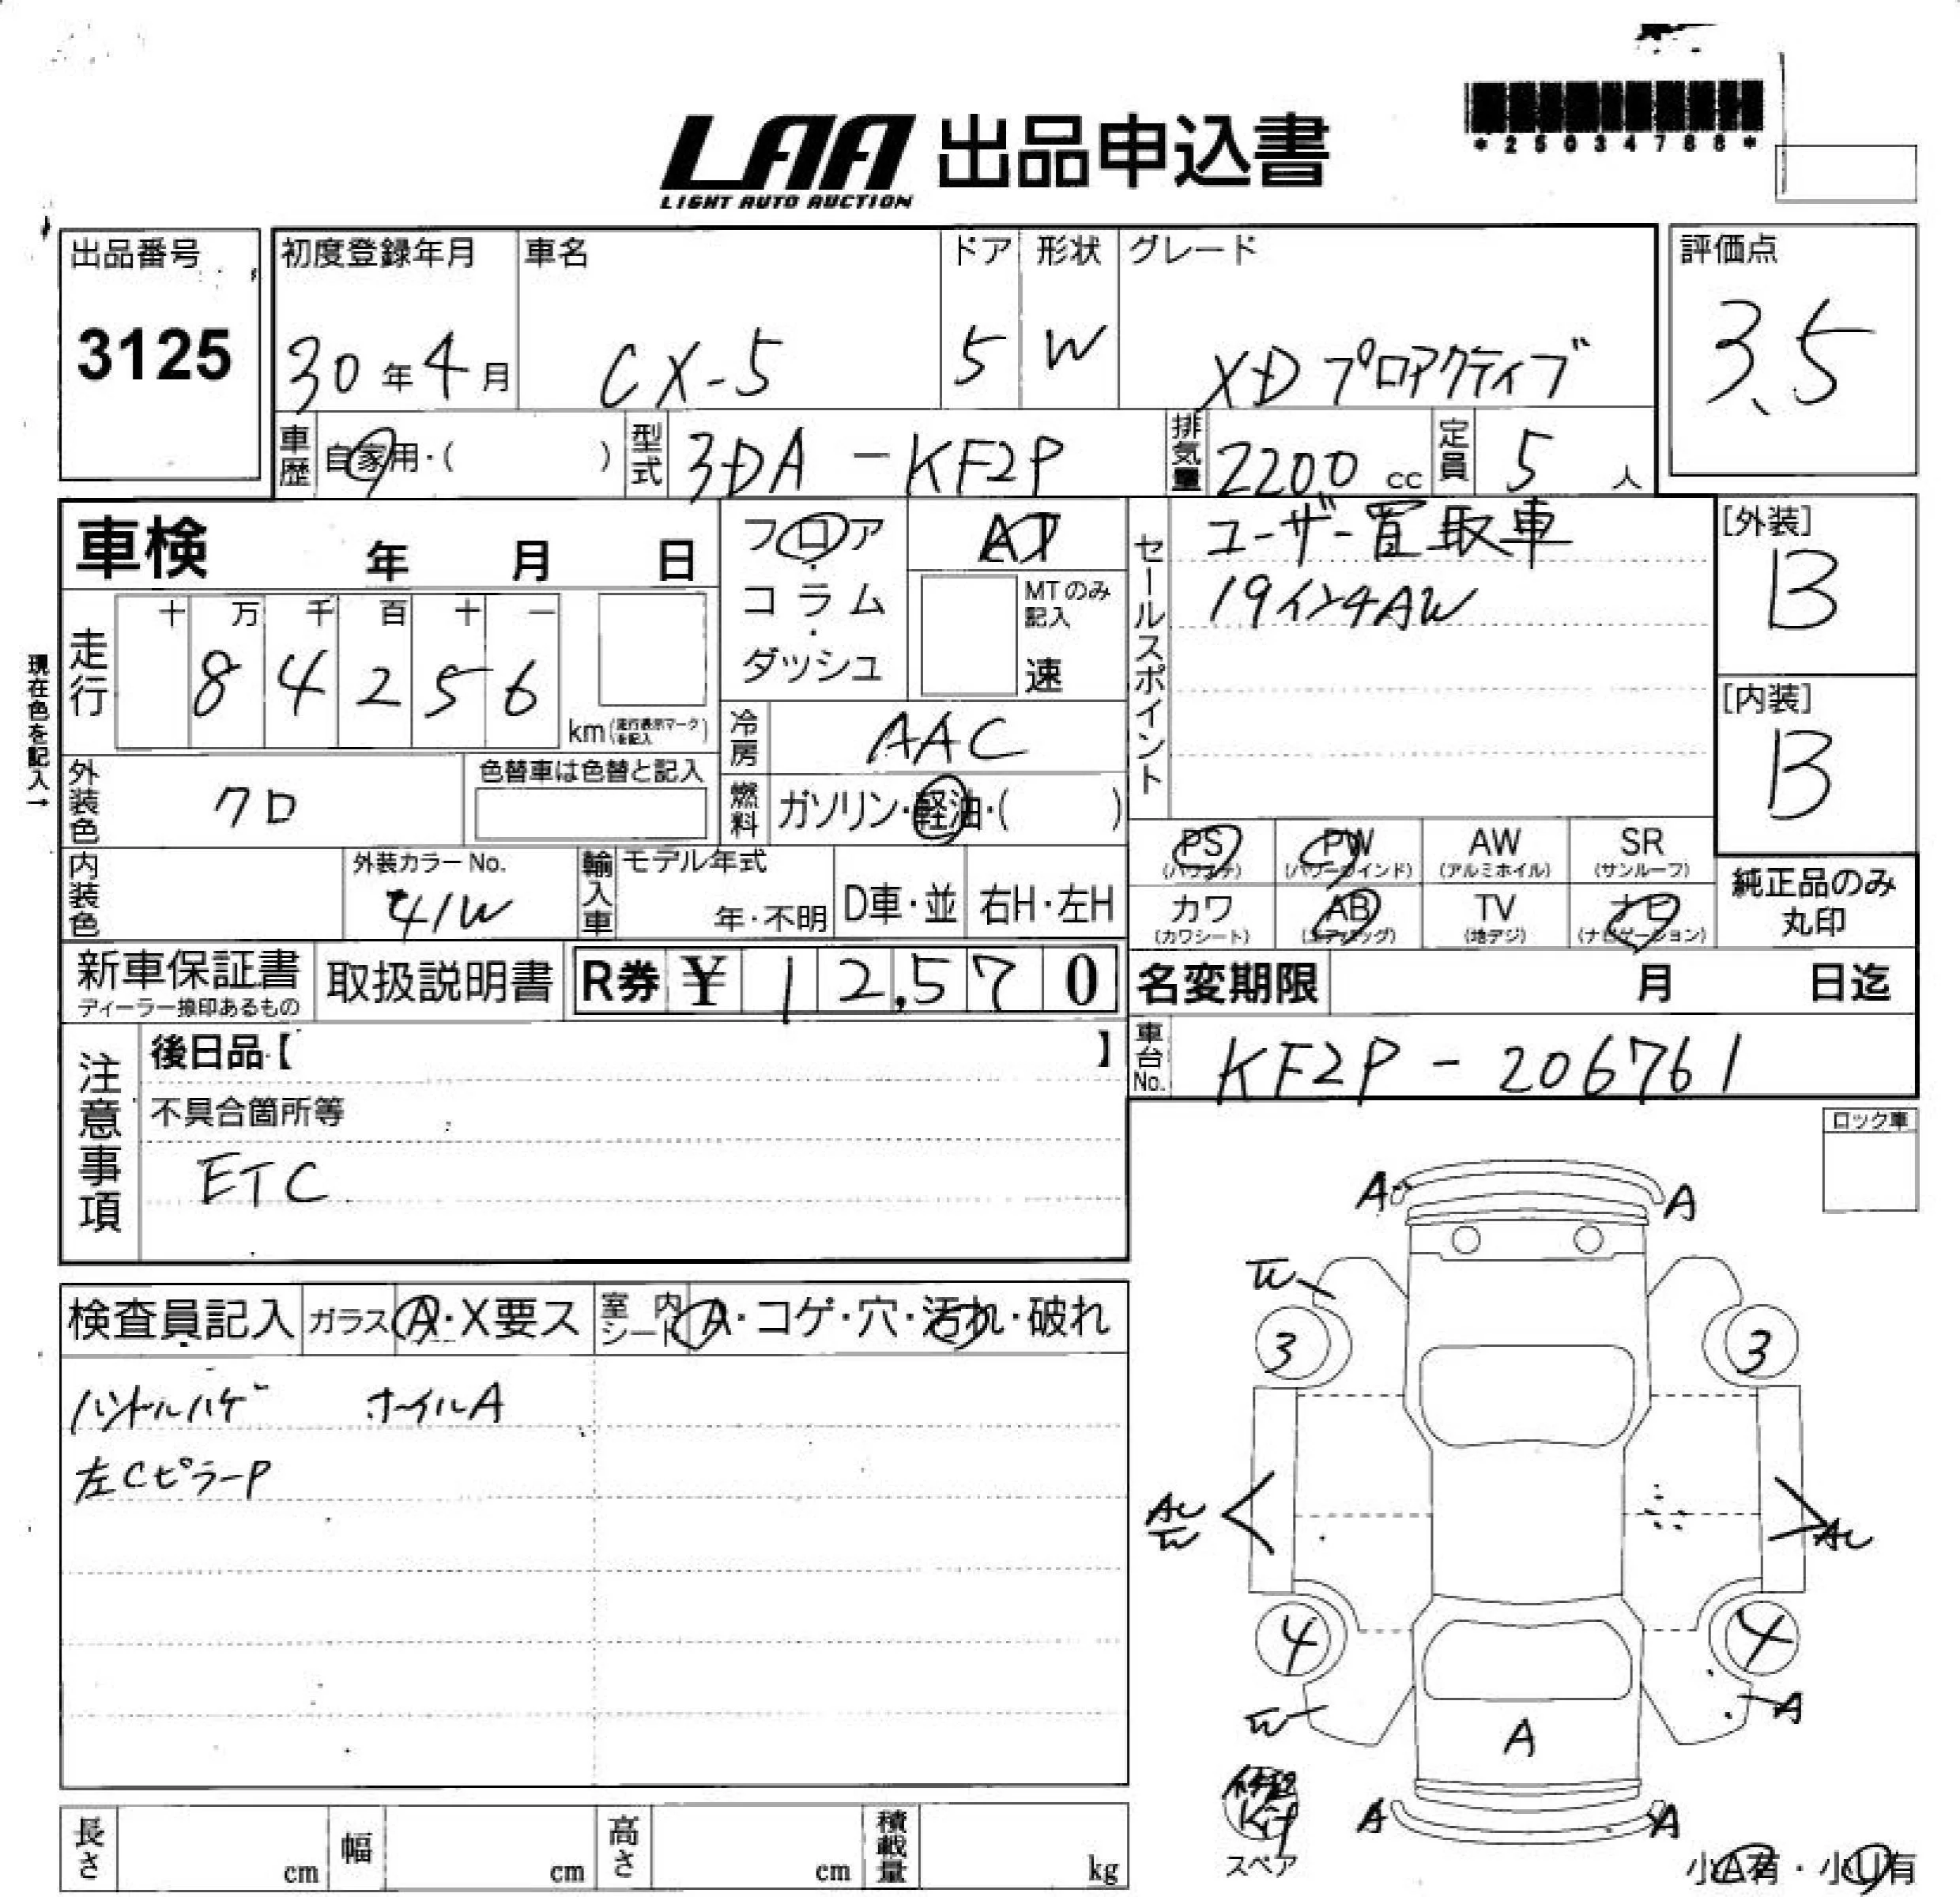 LAA 出品申込書
LIGHT AUTO AUCTION
*25034786*
出品番号
3125
初度登録年月
30年4月
車名
CX-5
ドア
5
形状
W
グレード
XD プロアクティブ
評価点
3.5
車歴
自家用・( )
型式
3DA-KF2P
排気量
2200 cc
定員
5 人
車検 年 月 日
フロア・コラム・ダッシュ
AT
MTのみ記入
速
セールスポイント
ユーザー買取車
19インチAW
[外装]
B
[内装]
B
現在色を記入→
走行
十 万 千 百 十 一
8 4 2 5 6
km(走行表示マークを記入)
冷房
AAC
燃料
ガソリン・軽油・( )
外装色
クロ
色替車は色替と記入
内装色
外装カラーNo.
41W
輸入車
モデル年式
年・不明
D車・並
右H・左H
PS
(パワステ)
PW
(パワーウインド)
AW
(アルミホイル)
SR
(サンルーフ)
カワ
(カワシート)
AB
(エアバッグ)
TV
(地デジ)
ナビ
(ナビゲーション)
純正品のみ
丸印
新車保証書
ディーラー捺印あるもの
取扱説明書
R券 ¥ 12,570
名変期限 月 日迄
車台No.
KF2P-206761
注意事項
後日品【 】
不具合箇所等
ETC
ロック車
検査員記入
ガラス
A・X要ス
室内シート
A・コゲ・穴・汚れ・破れ
ハンドルハゲ ホイルA
左CピラーP
A
A
3
3
4
4
A
A
A
A
スペア
小A有・小U有
長さ cm
幅 cm
高さ cm
積載量 kg